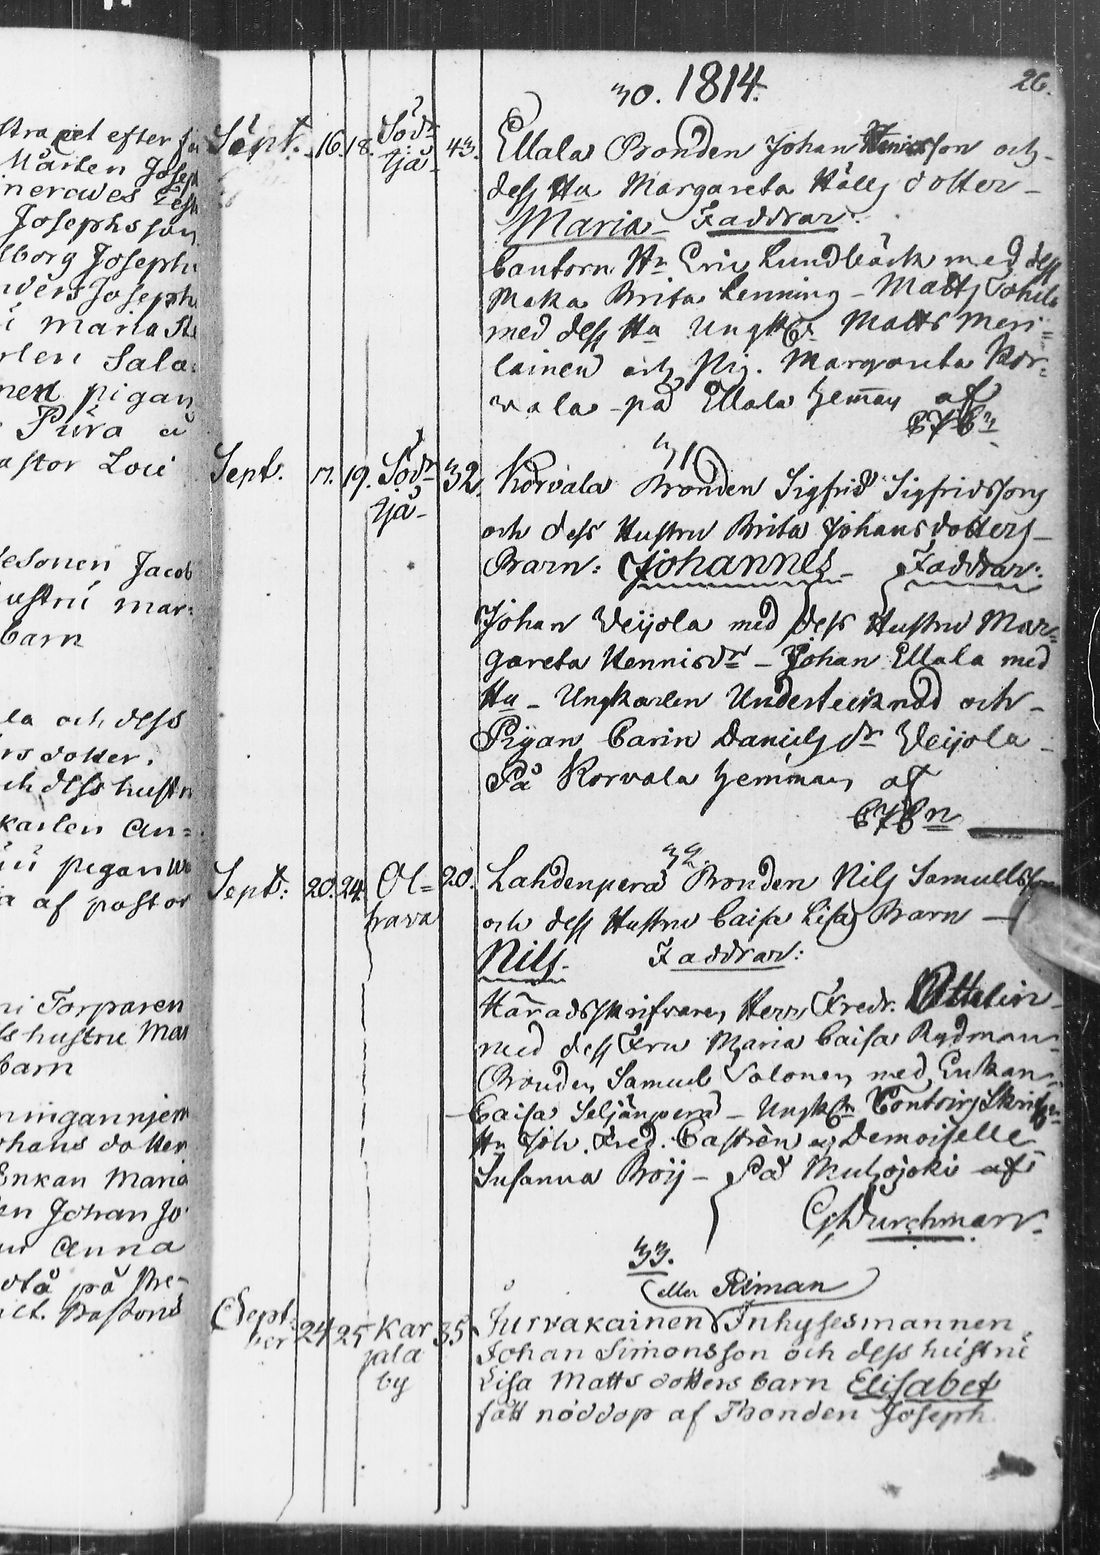 1814.
26.
30.
Sept. 16. 18. Söd: 43. Ellala Bonden Johan son och
tjä- dess Hu Margareta Hälls dotter-
Maria- Faddrar.
Cantorn Hr Eric Lundbäck med dess
Maka Brita Lenning - Matts
med dess Hu Matts Meri=
lainen och Pig. Margareta Kor=
vala på Ellala hemman af
31
Sept. 17. 19. Södr 32. Korvala Bonden Sigfrid Sigfridssons
tjä- och dess Hustru Brita Johansdotters
Barn: Johannes - Faddrar:
Johan Veijola med dess Hustru Mar=
gareta Hennisdr - Johan Ellala med
Hu - Ungkarlen Undertecknad och
Pigan Carin Daniels dr Veijola
På Korvala hemman af
32.
Sept: 20. 24. Ol= 20. Lahdenperä Bonden Nils Samuelsson
hava och dess Hustru Caisa Lisa Barn -
Nils. Faddrar:
Häradsskrifvaren Herr Fredr.
med dess Fru Maria Caisa Rydman
Bonden Samuel Salonen med Enkan
Caisa Seljänperä - Contoirs Skrifv
Hr Joh. Fred. Castrèn o Demoiselle
Susanna Broij - På Muhojoki af
33.
(eller Riman)
Sept: 24 25 Kar 35. Jurvakainen Inhysesmannen
ber jala Johan Simonsson och dess hustru
by Lisa Matts dotters barn Elisabet
fått nöddop af Bonden Joseph
efter
Mårten Joseph
Josephsson
lborg Joseph
nders Joseph
Maria
rlen Sala:
pigan
Pura
astor
esonen Jacob
ustru mar:
barn
la och dess
rs dotter.
ch dess hustr
karlen An=
pigan
a af pastor
ni Torparen
s hustru Mar
barn
hans dotter
Enkan Maria
en Johan Jo
Anna
på
Pastorn